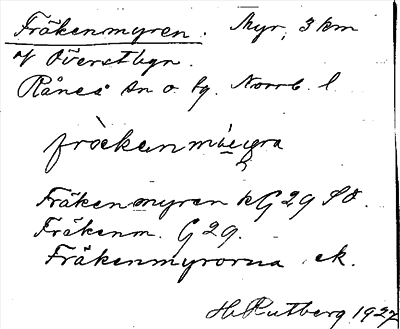 Fräkenmyren. Myr, 3 km
V Överstbyn.
Råneå sn o. tg. Norrb. l
Fräkenmyren kG29 SO.
Fräkenm. G29.
Fräkenmyrorna ek.
H. Rutberg 1927